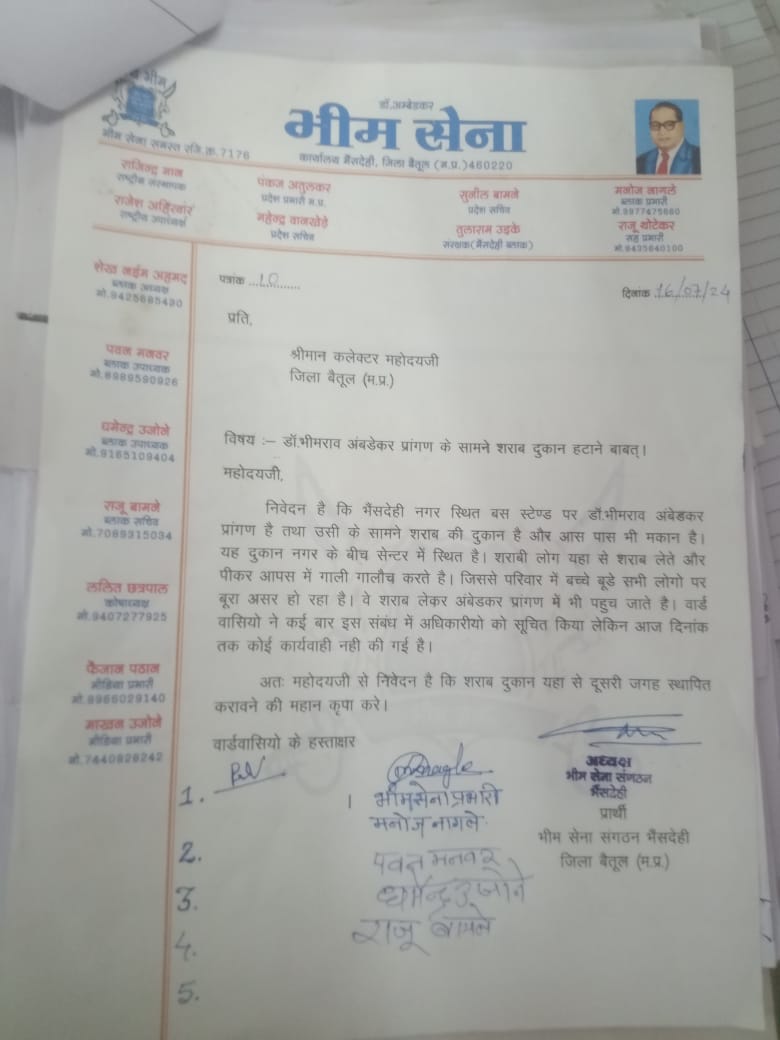 भीम
भीम सेना समस्त रजि.क्र.7176
डॉ.अम्बेडकर
भीम सेना
कार्यालय भैंसदेही, जिला बैतूल (म.प्र.)460220
राजिन्द्र मान
राष्ट्रीय संस्थापक
राजेश अहिरवार
राष्ट्रीय उपाध्यक्ष
पंकज अतुलकर
प्रदेश प्रभारी म.प्र.
महेन्द्र वानखेड़े
प्रदेश सचिव
सुनील बामने
प्रदेश सचिव
तुलाराम उइके
संरक्षक(भैंसदेही ब्लाक)
मनोज नागले
ब्लाक प्रभारी
मो.9977475660
राजू थोटेकर
सह प्रभारी
मो.9435640100
शेख नईम अहमद
ब्लाक अध्यक्ष
मो.9425685490
पवन मनवर
ब्लाक उपाध्यक्ष
मो.8989590926
धमेन्द्र उजोने
ब्लाक उपाध्यक्ष
मो.9165109404
राजू बामने
ब्लाक सचिव
मो.7089315034
ललित छत्रपाल
कोषाध्यक्ष
मो.9407277925
फैजान पठान
मीडिया प्रभारी
मो.8966029140
माखन उजोने
मीडिया प्रभारी
मो.7440828242
पत्रांक ...10...........
दिनांक 16/07/24
प्रति,
श्रीमान कलेक्टर महोदयजी
जिला बैतूल (म.प्र.)
विषय :– डॉ.भीमराव अंबडेकर प्रांगण के सामने शराब दुकान हटाने बाबत्।
महोदयजी,
निवेदन है कि भैंसदेही नगर स्थित बस स्टेण्ड पर डॉ.भीमराव अंबेडकर
प्रांगण है तथा उसी के सामने शराब की दुकान है और आस पास भी मकान है।
यह दुकान नगर के बीच सेन्टर में स्थित है। शराबी लोग यहा से शराब लेते और
पीकर आपस में गाली गालौच करते है। जिससे परिवार में बच्चे बूडे सभी लोगो पर
बूरा असर हो रहा है। वे शराब लेकर अंबेडकर प्रांगण में भी पहुच जाते है। वार्ड
वासियो ने कई बार इस संबंध में अधिकारीयो को सूचित किया लेकिन आज दिनांक
तक कोई कार्यवाही नही की गई है।
अतः महोदयजी से निवेदन है कि शराब दुकान यहा से दूसरी जगह स्थापित
करावने की महान कृपा करे।
वार्डवासियो के हस्ताक्षर
1.
। भीमसेना प्रभारी
मनोज नागले
2.
पवन मनवर
3.
धमेन्द्र उजोने
4.
राजू बामने
5.
अध्यक्ष
भीम सेना संगठन
भैंसदेही
प्रार्थी
भीम सेना संगठन भैंसदेही
जिला बैतूल (म.प्र.)